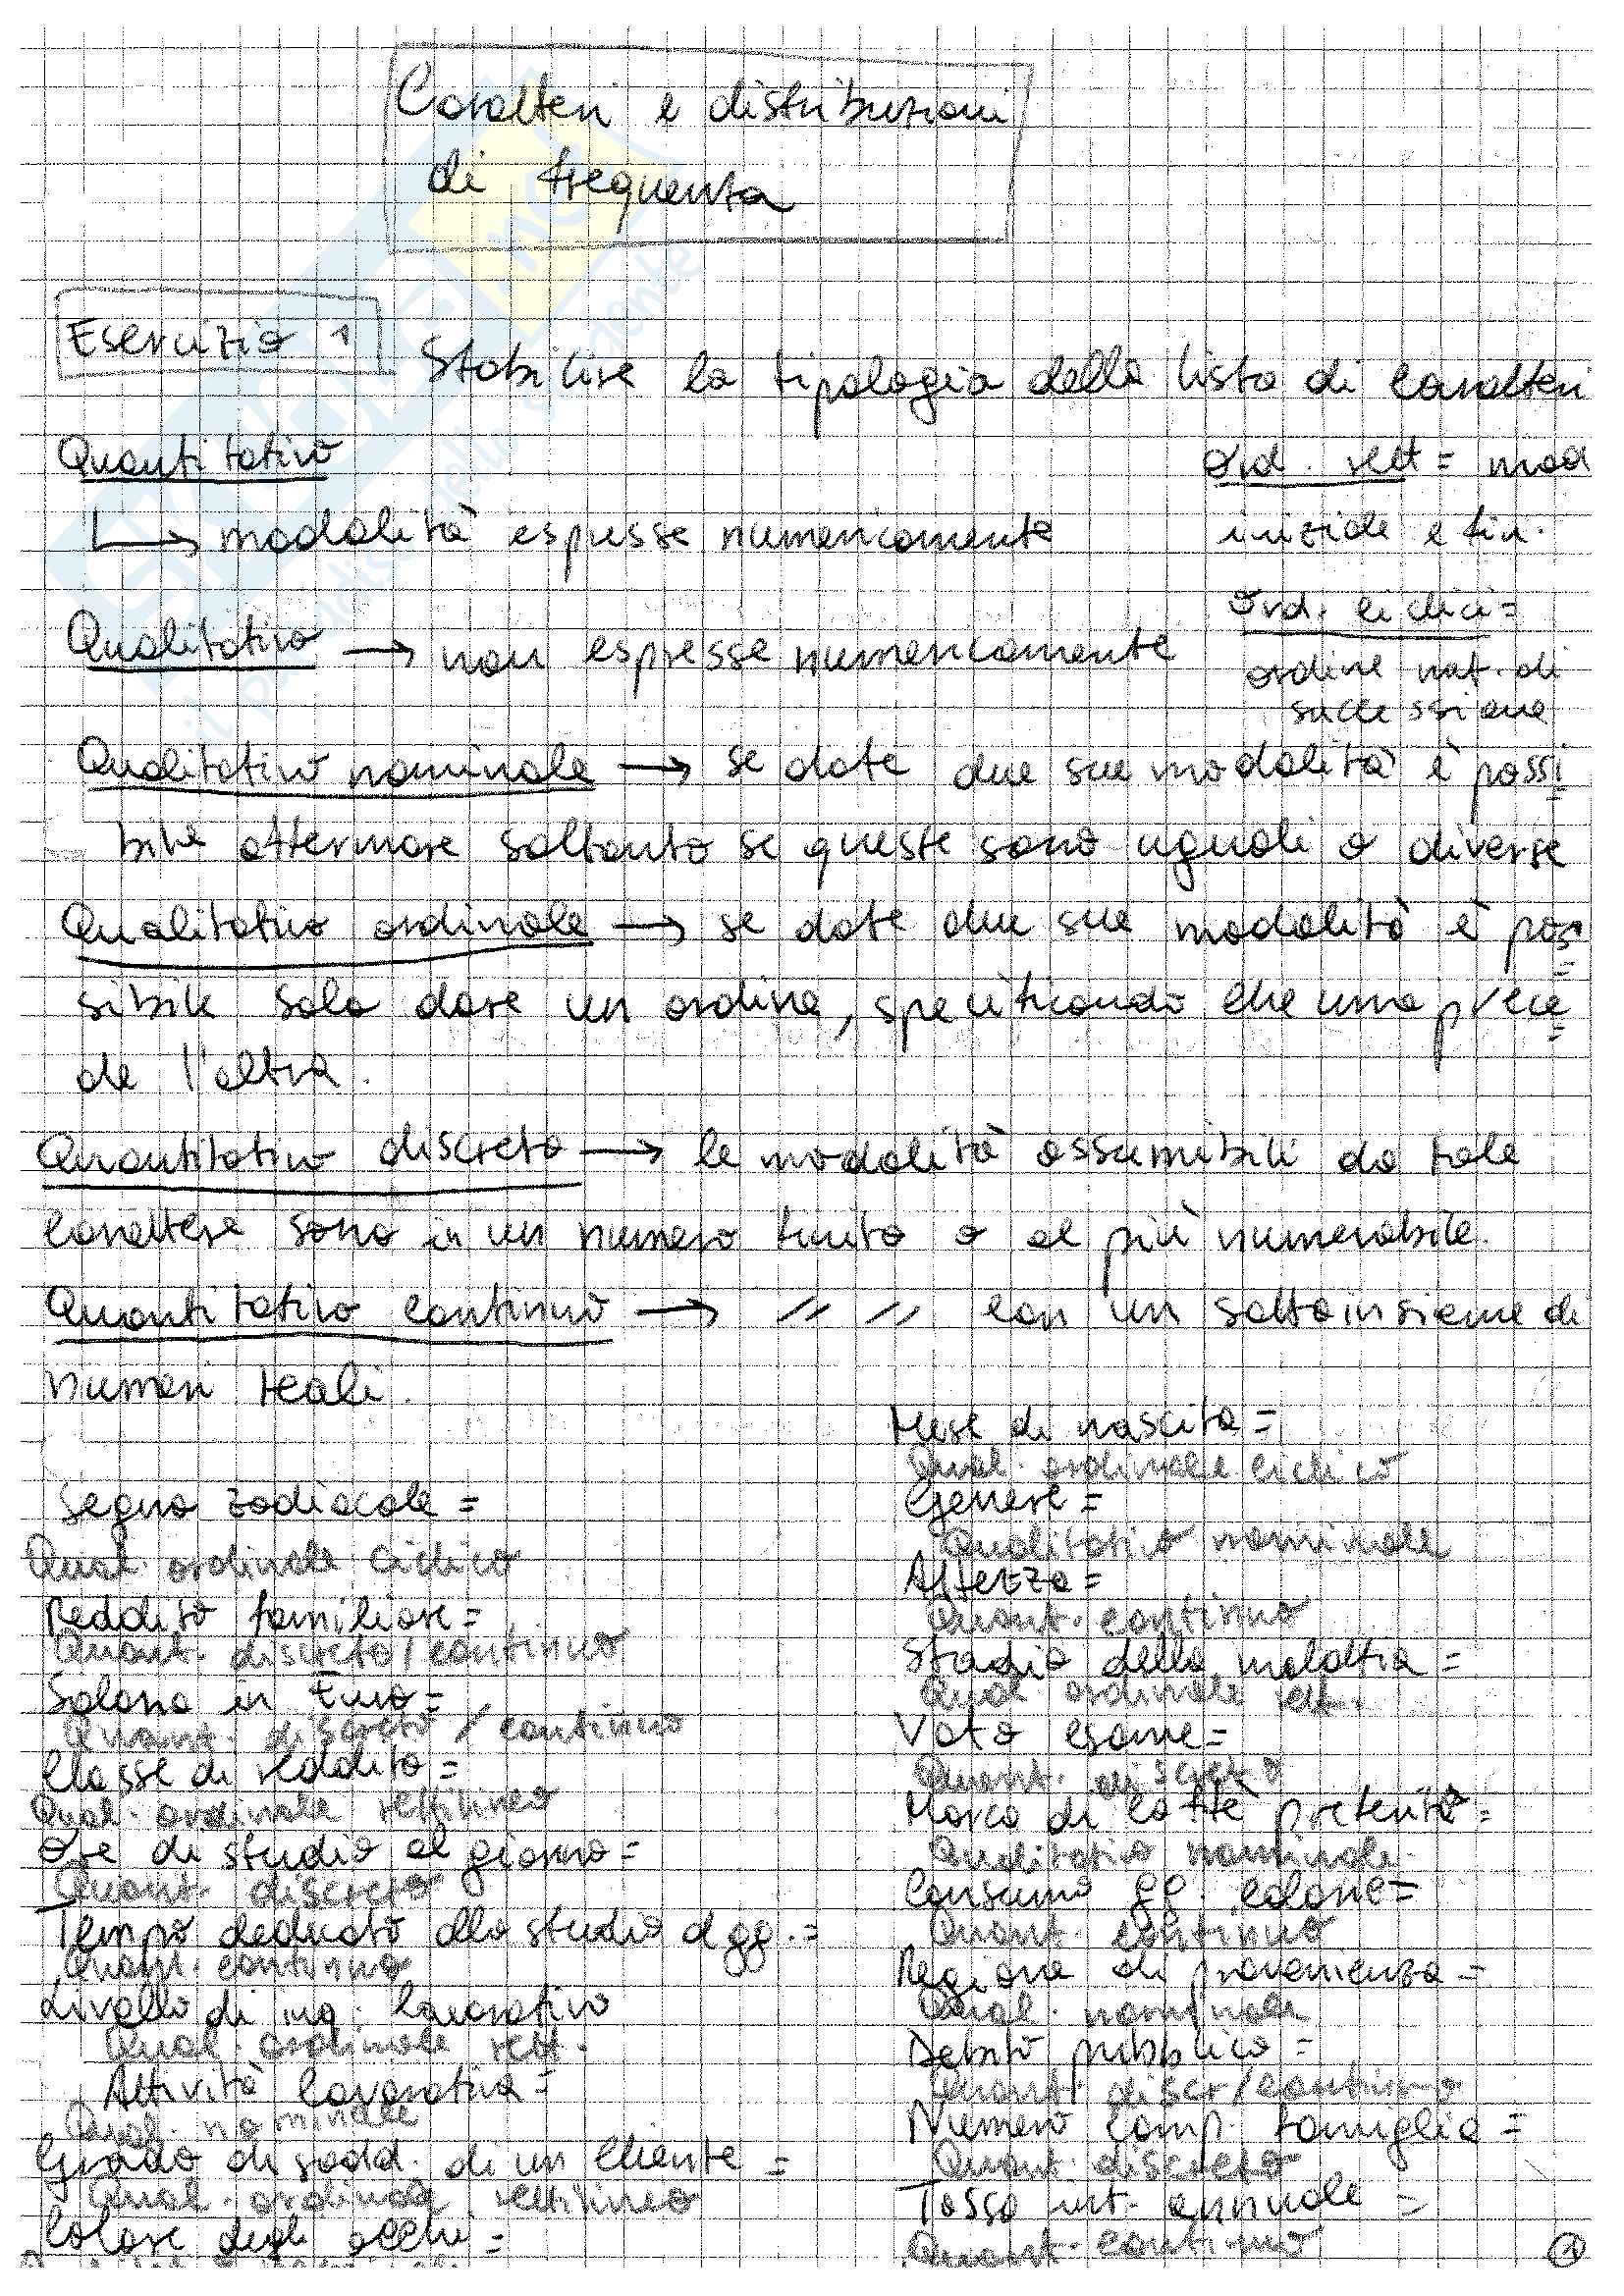 Caratteri e distribuzioni
di frequenza
Esercizio 1
Stabilire la tipologia della lista di caratteri
Quantitativo
↳ modalità espresse numericamente
Ord. rett = mod
iniziale e fin.
Qualitativo → non espresse numericamente
Ord. ciclici =
ordine nat. di
successione
Qualitativo nominale → se date due sue modalità è possi=
bile affermare soltanto se queste sono uguali o diverse
Qualitativo ordinale → se date due sue modalità è pos=
sibile solo dare un ordine, specificando che una prece=
de l'altra.
Quantitativo discreto → le modalità assumibili da tale
carattere sono in un numero finito o al più numerabile.
Quantitativo continuo → // // con un sottoinsieme di
numeri reali.
Segno zodiacale =
Qual. ordinale ciclico
Reddito familiare =
Quant. discreto / continuo
Salario in Euro =
Quant. discreto / continuo
Classe di reddito =
Qual. ordinale rettilineo
Ore di studio al giorno =
Quant. discreto
Tempo dedicato allo studio al gg. =
Quant. continuo
Livello di inq. lavorativo
Qual. ordinale rett.
Attività lavorativa =
Qual. nominale
Grado di sodd. di un cliente =
Qual. ordinale rettilineo
Colore degli occhi =
Mese di nascita =
Qual. ordinale ciclico
Genere =
Qualitativo nominale
Altezza =
Quant. continuo
Stadio della malattia =
Qual ordinale rett.
Voto esame =
Quant. discreto
Marca di caffè preferito =
Qualitativo nominale.
Consumo gg. calorie =
Quant. continuo
Regione di provenienza =
Qual. nominale
Debito pubblico =
Quant. discr / continuo
Numero comp. famiglia =
Quant. discreto
Tasso int. annuale =
Quant. continuo
1